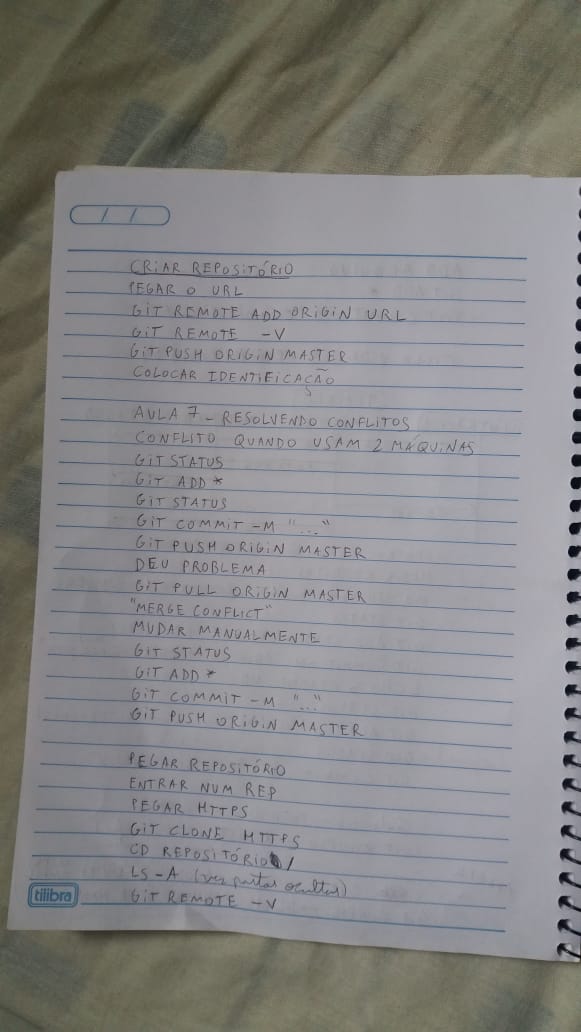 / /
CRIAR REPOSITÓRIO
PEGAR O URL
GIT REMOTE ADD ORIGIN URL
GIT REMOTE -V
GIT PUSH ORIGIN MASTER
COLOCAR IDENTIFICAÇÃO
AULA 7 - RESOLVENDO CONFLITOS
CONFLITO QUANDO USAM 2 MÁQUINAS
GIT STATUS
GIT ADD *
GIT STATUS
GIT COMMIT -M "..."
GIT PUSH ORIGIN MASTER
DEU PROBLEMA
GIT PULL ORIGIN MASTER
"MERGE CONFLICT"
MUDAR MANUALMENTE
GIT STATUS
GIT ADD *
GIT COMMIT -M "..."
GIT PUSH ORIGIN MASTER
PEGAR REPOSITÓRIO
ENTRAR NUM REP
PEGAR HTTPS
GIT CLONE HTTPS
CD REPOSITÓRIO/
LS -A (ver pastas ocultas)
GIT REMOTE -V
tilibra